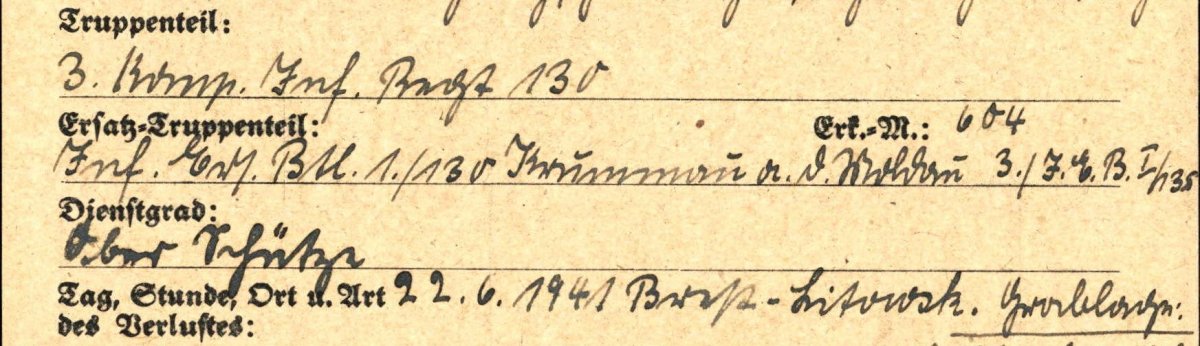 Truppenteil:
3. Komp. Inf. Regt 130
Ersatz-Truppenteil: Erk.-M.: 604
Inf. Ers. Btl. 1./130 Krummau a. d. Moldau 3./J.E.B. I/135
Dienstgrad:
Ober Schütze
Tag, Stunde, Ort u. Art 22.6.1941 Brest-Litowsk. Grablage:
des Verlustes: